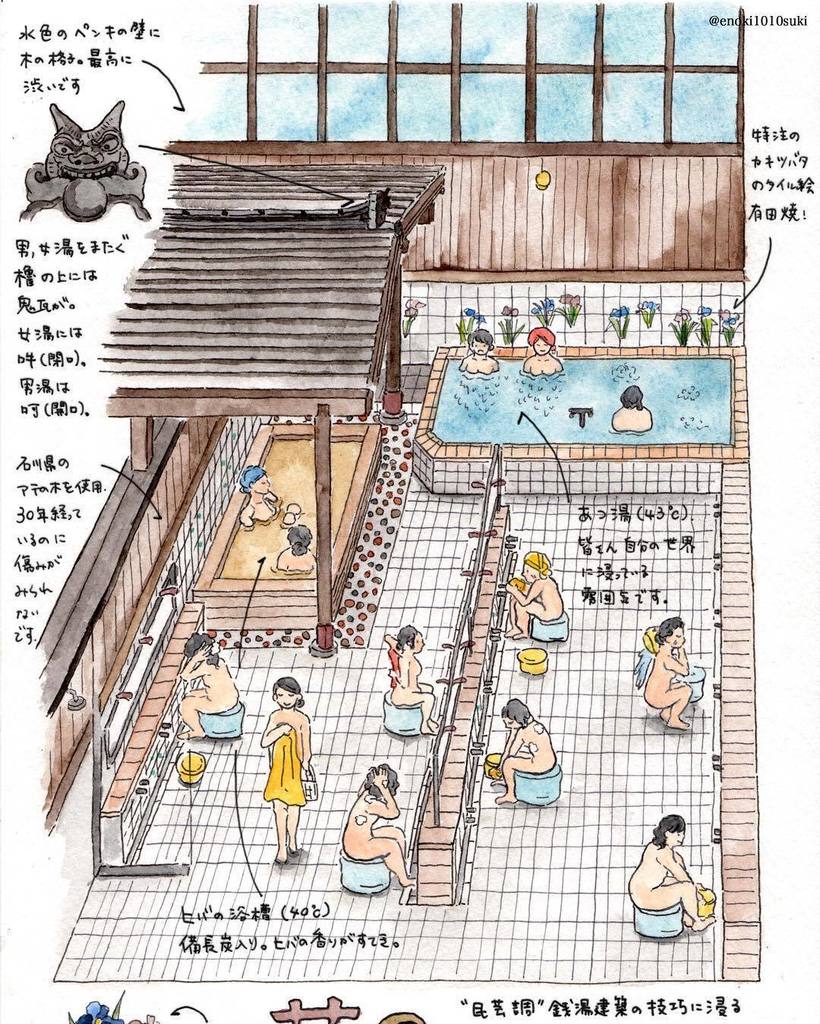 @enoki1010suki
水色のペンキの壁に
木の格子。最高に
渋いです
特注の
カキツバタ
のタイル絵
有田焼！
男,女湯をまたぐ
櫓の上には
鬼瓦が。
女湯には
吽(閉口)。
男湯は
呵(開口)。
石川県の
アテの木を使用.
30年経って
いるのに
傷みが
みられ
ない
です.
あつ湯(43℃).
皆さん自分の世界
に浸っている
雰囲気です。
ヒバの浴槽(40℃)
備長炭入り。ヒバの香りがすてき。
"民芸調"銭湯建築の技巧に浸る